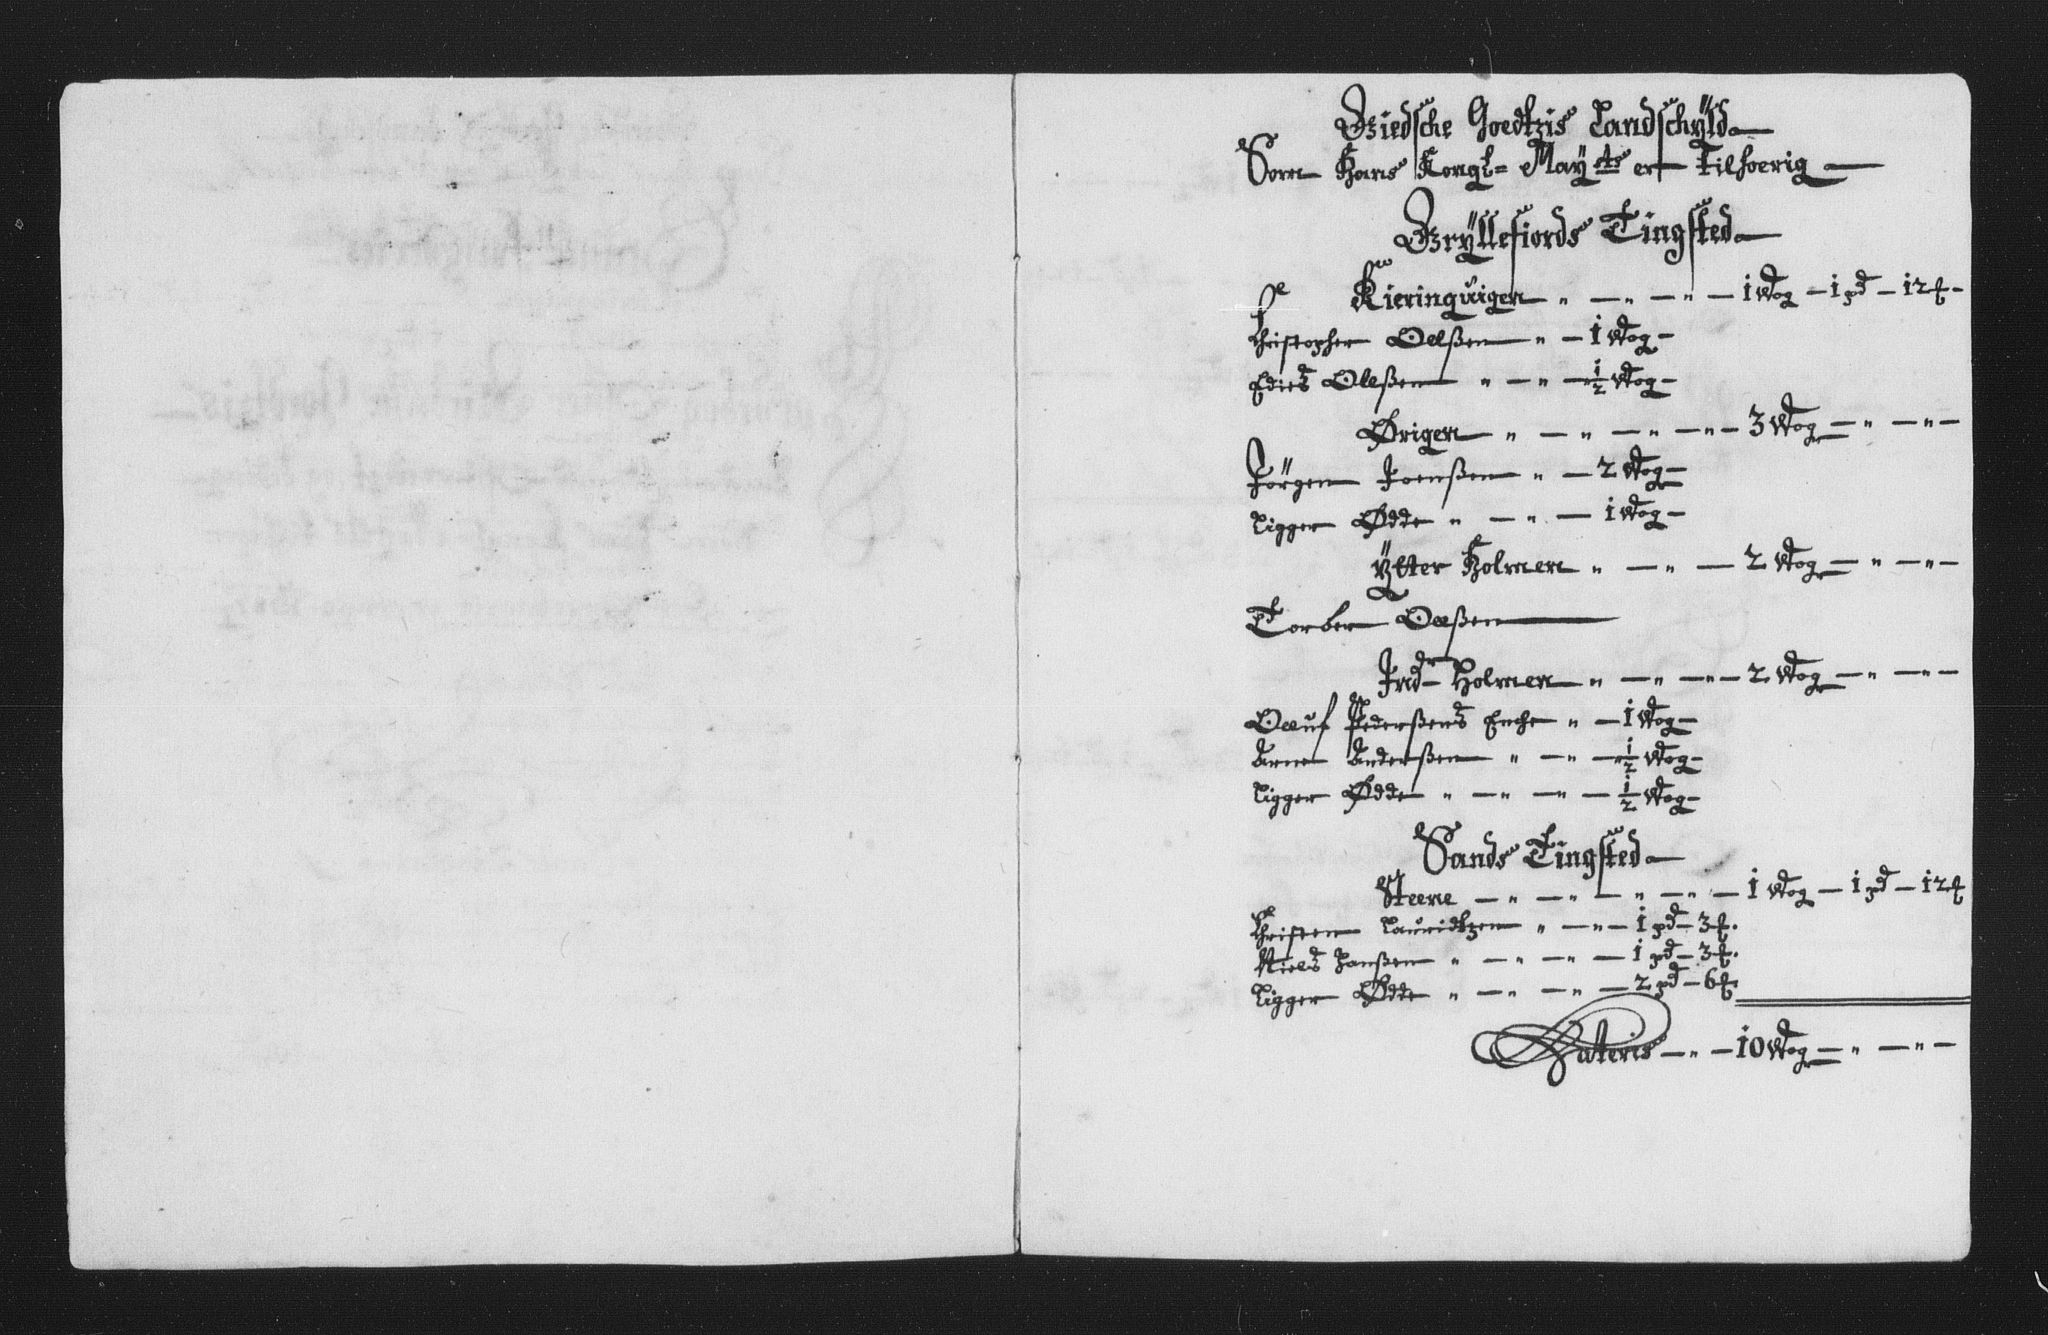 Biedsche Goedtzis Landschÿld
Som Hans Kongl= Maÿts er Tilhoerig
Grÿllefiords Tingsted
Kieringuigen „ — „ — „ — 1 Wog — 1 pd — 12 ℔ —
Christopher Oelßen „ — 1 Wog —
Edies Oleßen „ — „ — ½ Wog —
Øvigen „ — „ — „ — „ — 3 Wog — „ — „ —
Jörgen Joenßen „ — 2 Wog —
Ligger Ødde „ — „ — 1 Wog —
Ÿtter Holmen „ — „ — 2 Wog — „ — „ —
Torber Oelßen
Ind Holmen „ — „ — „ — 2 Wog — „ — „ —
Oluf Pederßens Enche „ — 1 Wog —
Arne Anderßen „ — „ — ½ Wog —
Ligger Ødde „ — „ — „ — ½ Wog —
Sands Tingsted
Steene — „ — „ — „ — „ — 1 Wog — 1 pd — 12 ℔
Christen Lauridtzen „ — „ — 1 pd — 3 ℔.
Niels Hanßen „ — „ — „ — 1 pd — 3 ℔.
Ligger Ødde „ — „ — „ — 2 pd — 6 ℔.
Lateris — „ — 10 Wog — „ — „ —